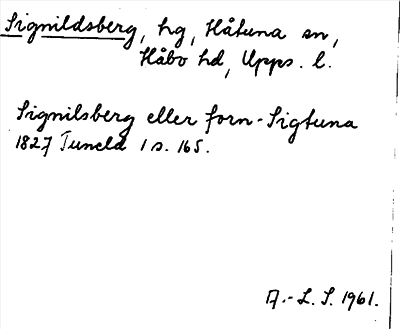 Signildsberg, hg, Håtuna sn,
Håbo hd, Upps. l.
Signilsberg eller forn-Sigtuna
1827 Tuneld 1 s. 165.
A.-L. S. 1961.